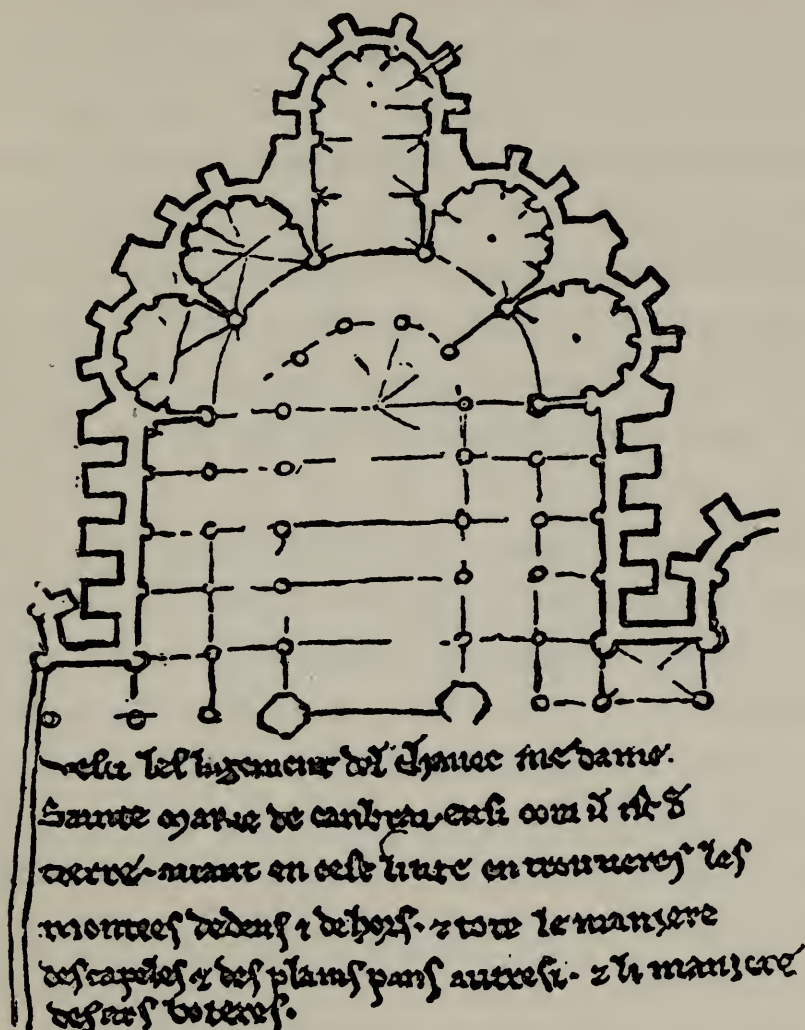 esci lesligement del chavec me dame.
Sainte marie de canbrai ensi com il ist d
tierre. avant en cest livre en trouveres les
montees dedens ⁊ dehors. ⁊ tote le maniere
des capeles ⁊ des plains pans autresi. ⁊ li maniere
des ars boteres.